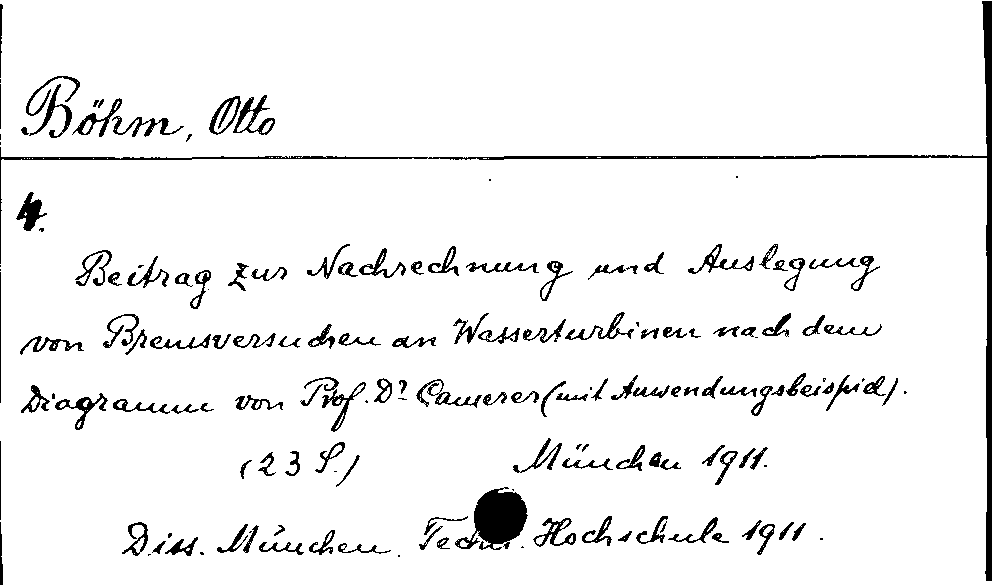 Böhm, Otto
4.
Beitrag zur Nachrechnung und Auslegung
von Bremsversuchen an Wasserturbinen nach dem
Diagramm von Prof. Dr Camerer (mit Anwendungsbeispiel).
(23 S.) München 1911.
Diss. München. Techn. Hochschule 1911.